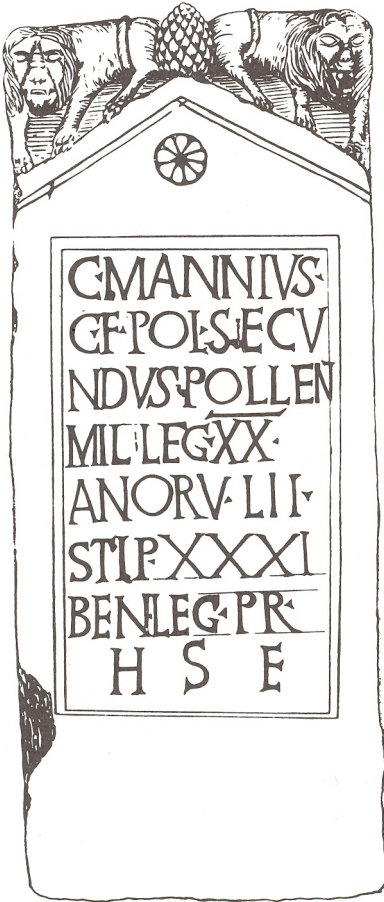 C·MANNIVS·
C·F·POL·SECV
NDVS·POLLEN
MIL·LEG·XX·
ANORV·LII·
STIP·XXXI
BEN·LEG·PR·
H S E